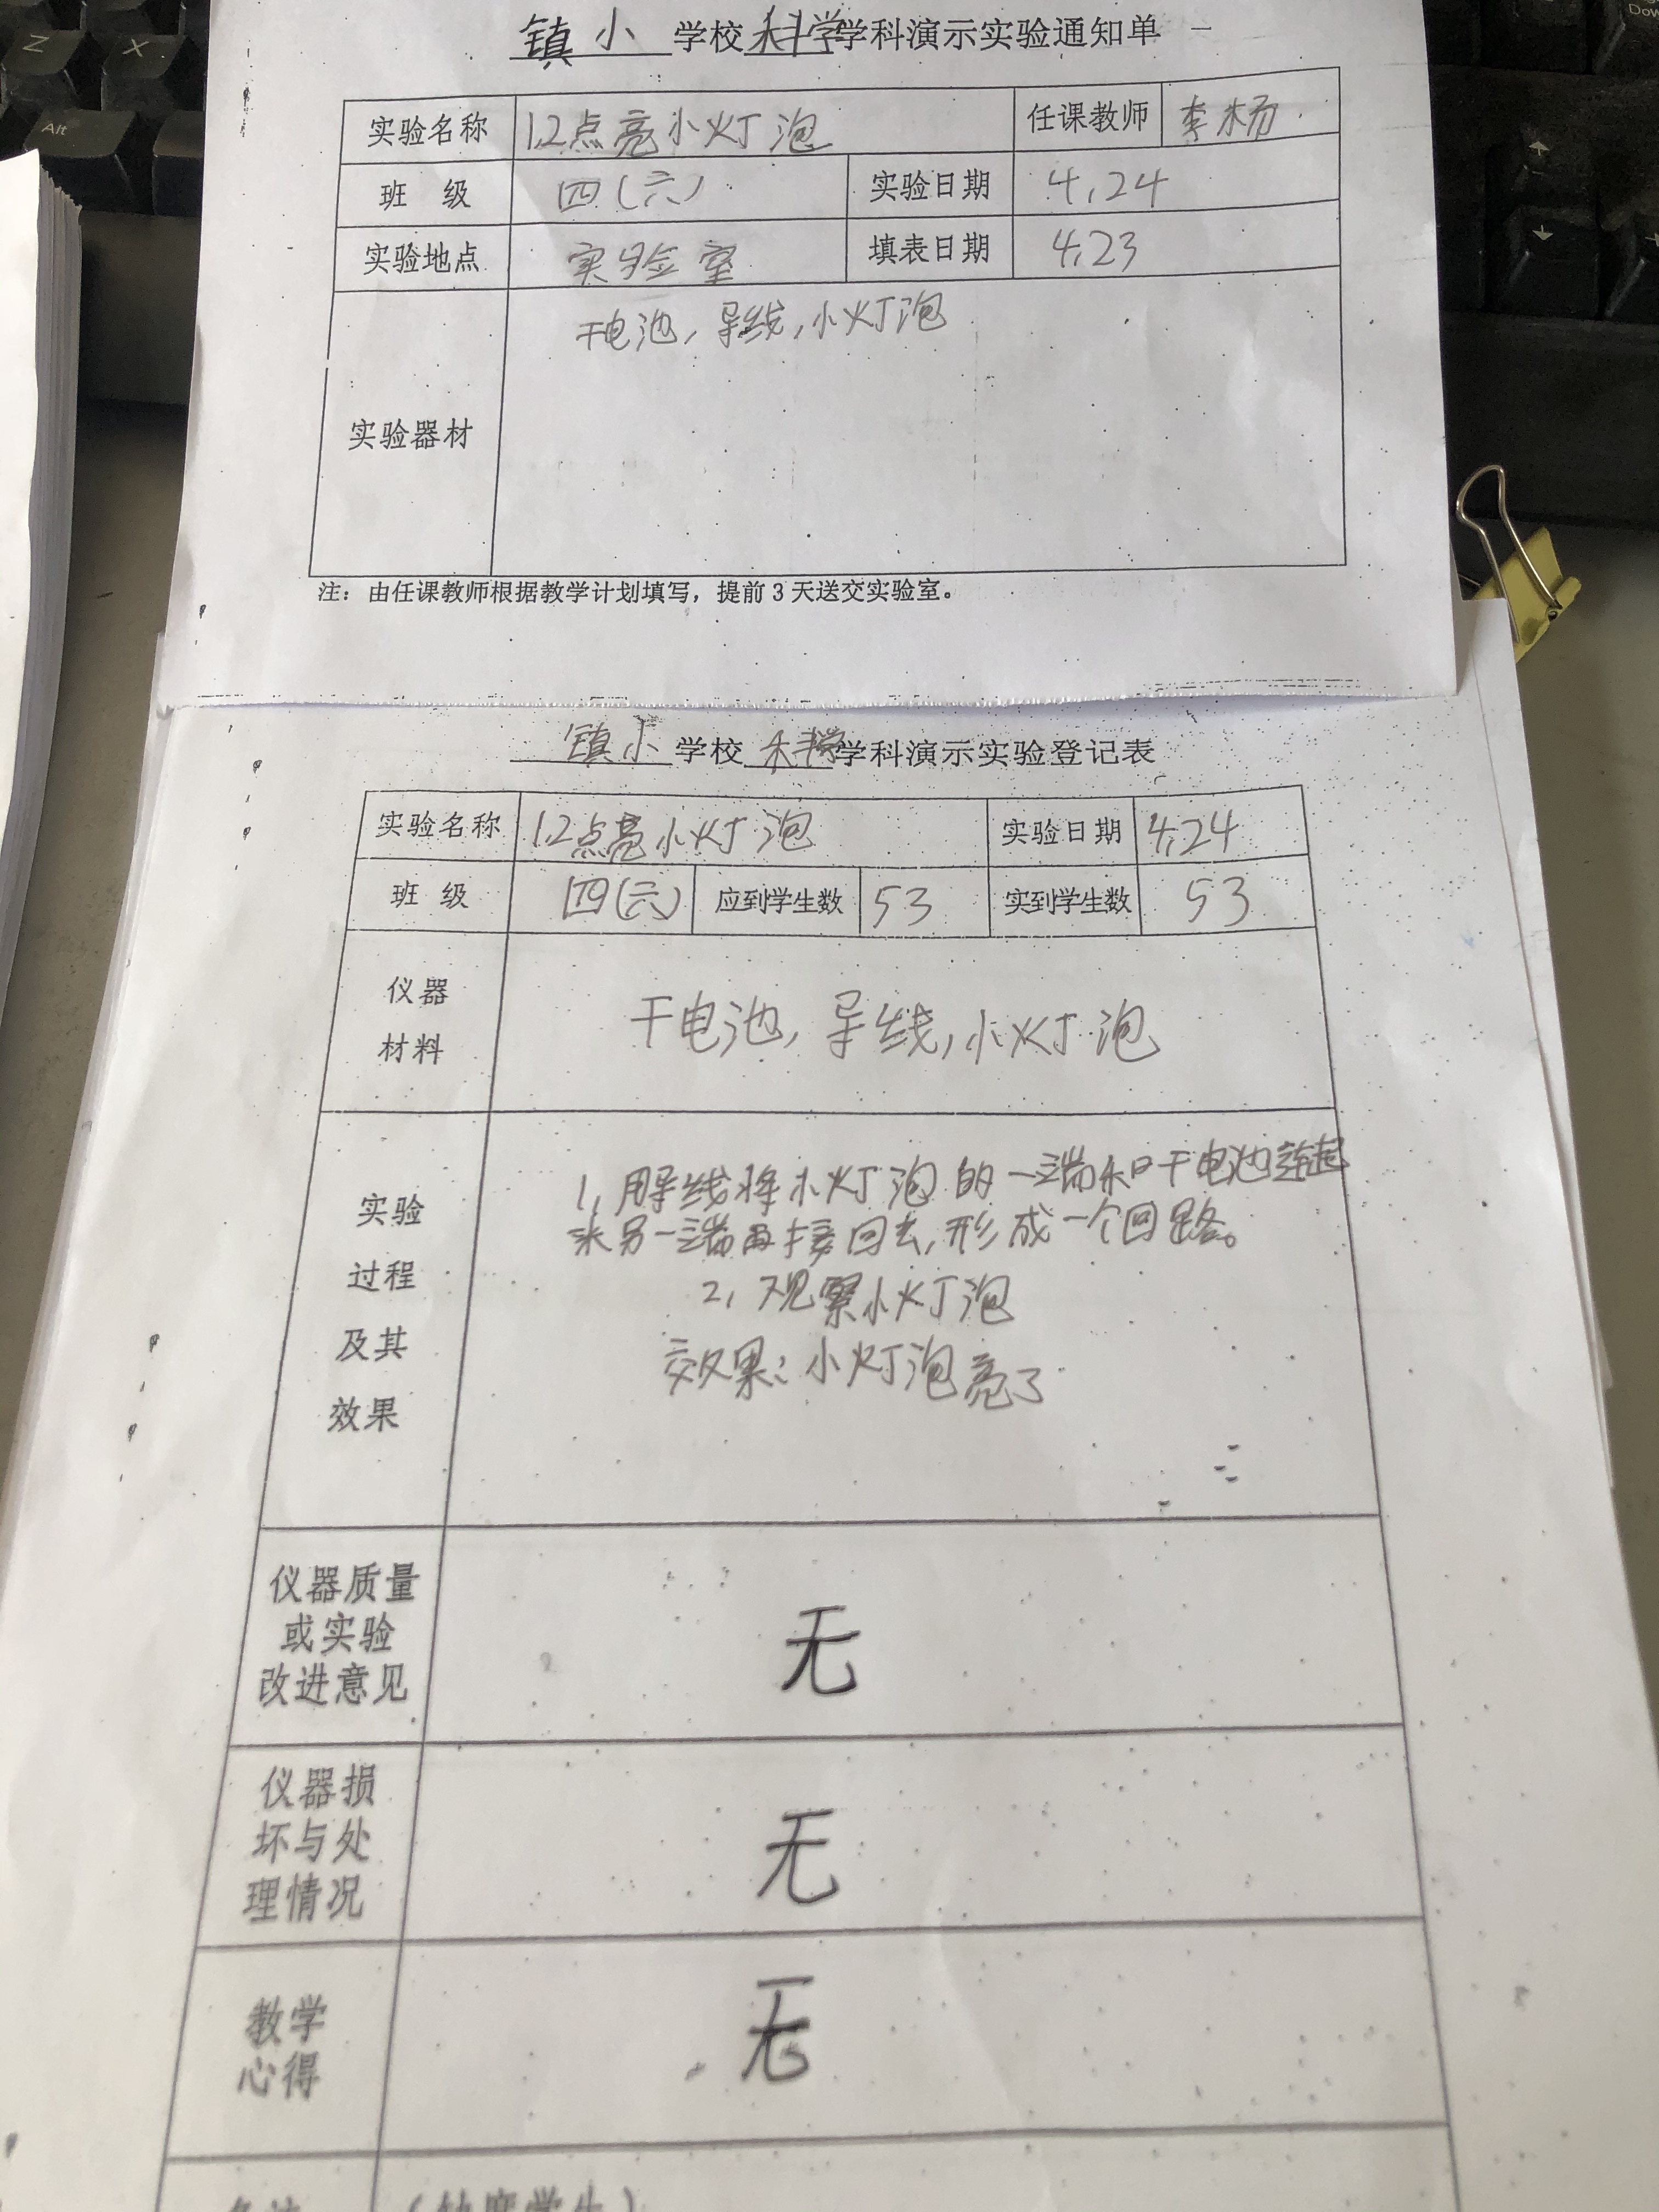 镇小学校科学学科演示实验通知单
实验名称 1.2点亮小灯泡 任课教师 李杨
班 级 四(六) 实验日期 4.24
实验地点 实验室 填表日期 4.23
实验器材 干电池,导线,小灯泡
注：由任课教师根据教学计划填写，提前3天送交实验室。
镇小学校科学学科演示实验登记表
实验名称 1.2点亮小灯泡 实验日期 4.24
班 级 四(六) 应到学生数 53 实到学生数 53
仪器
材料
干电池,导线,小灯泡
实验
过程
及其
效果
1,用导线将小灯泡的一端和干电池连起
来另一端再接回去,形成一个回路。
2,观察小灯泡
效果:小灯泡亮了
仪器质量
或实验
改进意见
无
仪器损
坏与处
理情况
无
教学
心得
无
Z
X
Alt